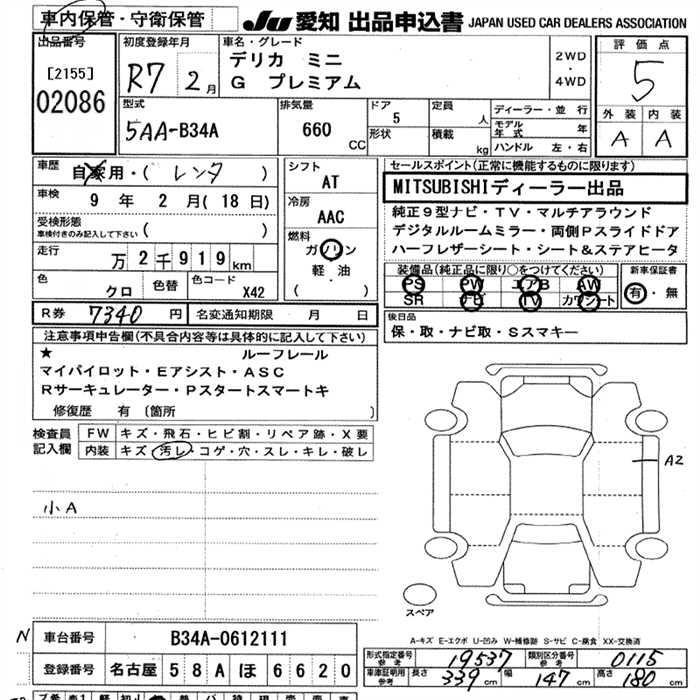 車内保管・守衛保管
JU 愛知 出品申込書 JAPAN USED CAR DEALERS ASSOCIATION
出品番号
[2155]
02086
初度登録年月
R7 2月
車名・グレード
デリカ ミニ
G プレミアム
2WD
・
4WD
評価点
5
外装 内装
A A
型式
5AA-B34A
排気量
660 CC
ドア
5
形状
定員 人
積載 kg
ディーラー・並行
モデル年式 年
ハンドル 左・右
車歴 自家用・( レンタ )
車検 9 年 2 月 ( 18 日 )
受検形態
車検付きのみ記入して下さい ( )
走行 万 2 千 9 1 9 km
色 クロ 色替 色コード X42
シフト
AT
冷房
AAC
燃料
ガソリン
軽・油
( )
セールスポイント(正常に機能するものに限ります)
MITSUBISHIディーラー出品
純正9型ナビ・TV・マルチアラウンド
デジタルルームミラー・両側Pスライドドア
ハーフレザーシート・シート&ステアヒータ
装備品(純正品に限り○をつけてください)
PS PW エアB AW
SR ナビ TV カワシート
新車保証書
有・無
R券 7340 円 名変通知期限 月 日
後日品
保・取・ナビ取・Sスマキー
注意事項申告欄(不具合内容等は具体的に記入して下さい)
★ ルーフレール
マイパイロット・Eアシスト・ASC
Rサーキュレーター・PスタートスマートキI
修復歴 有 〔箇所 〕
検査員記入欄
FW キズ・飛石・ヒビ割・リペア跡・X要
内装 キズ・汚レ・コゲ・穴・スレ・キレ・破レ
小A
A2
スペア
A-キズ E-エクボ U-凹み W-補修跡 S-サビ C-腐食 XX-交換済
N
車台番号 B34A-0612111
登録番号 名古屋 5 8 A ほ 6 6 2 0
形式指定番号 参考 19537 類別区分番号 参考 0115
車庫証明用 参考 長さ 339 cm 幅 147 cm 高さ 180 cm